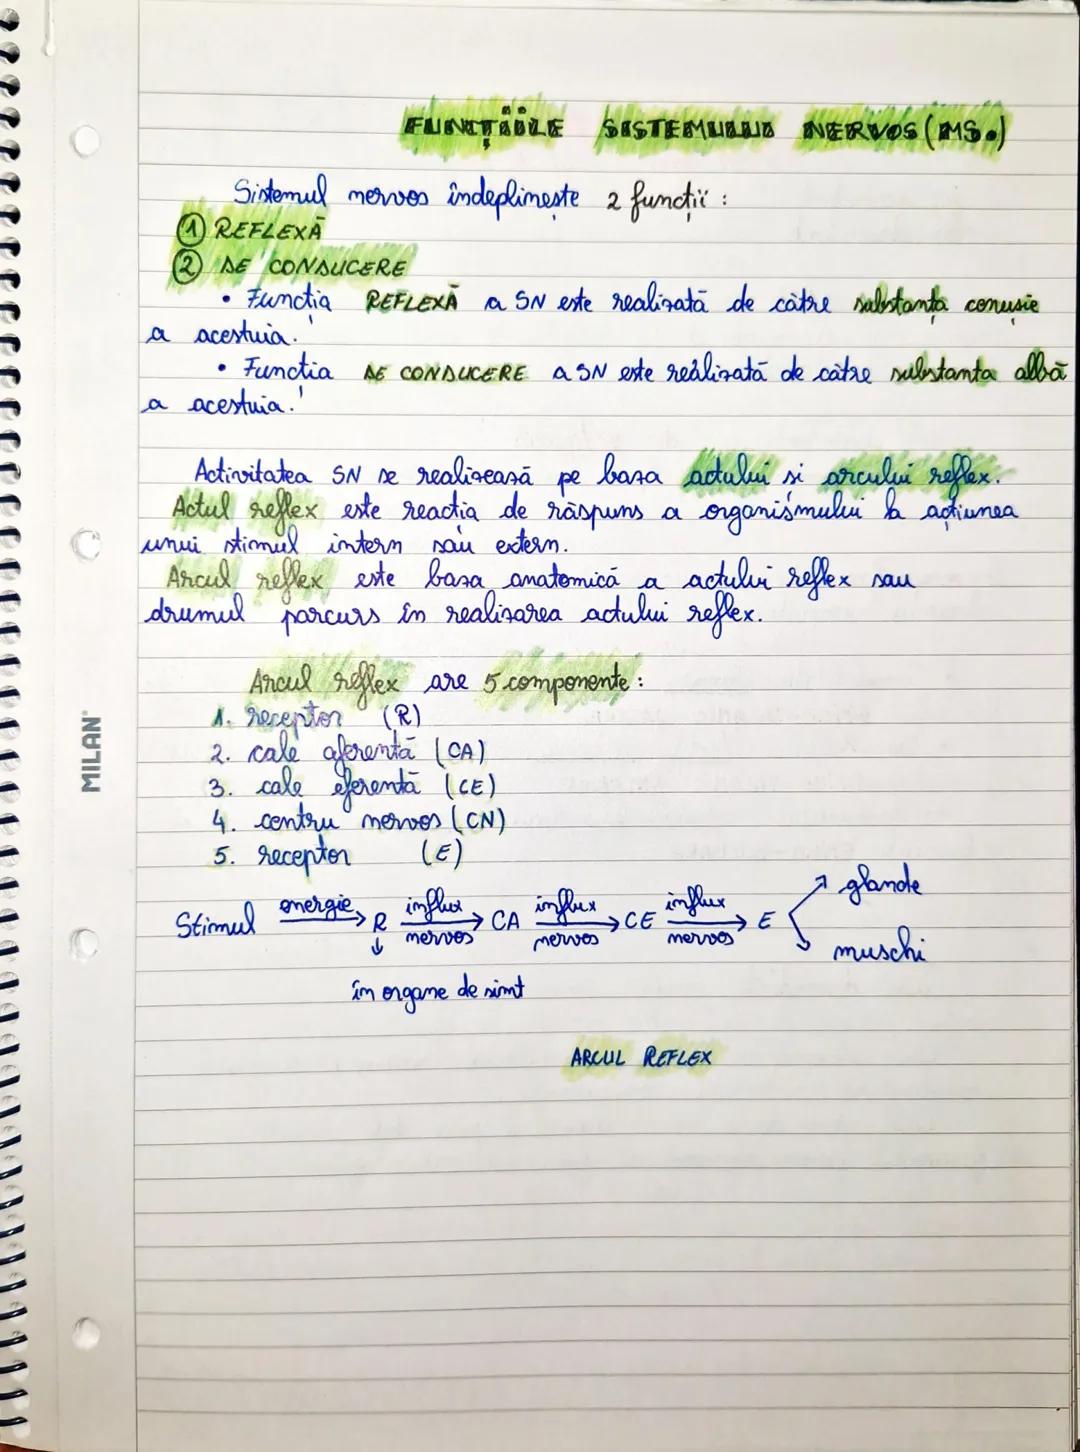 FUNCȚIILE SISTEMULUI NERVOS (MS.)
Sistemul nervos îndeplinește 2 funcții :
① REFLEXĂ
② DE CONDUCERE
• Funcția REFLEXĂ a SN este realizată de către substanța cenușie
a acestuia.
• Funcția DE CONDUCERE a SN este realizată de către substanța albă
a acestuia.
Activitatea SN se realizează pe baza actului și arcului reflex.
Actul reflex este reacția de răspuns a organismului la acțiunea
unui stimul intern sau extern.
Arcul reflex este baza anatomică a actului reflex sau
drumul parcurs în realizarea actului reflex.
Arcul reflex are 5 componente :
1. receptor (R)
2. cale aferentă (CA)
3. cale eferentă (CE)
4. centru nervos (CN)
5. receptor (E)
Stimul energie → R influx nervos → CA influx nervos → CE influx nervos → E glande
muschi
↓
în organe de simt
ARCUL REFLEX
MILAN